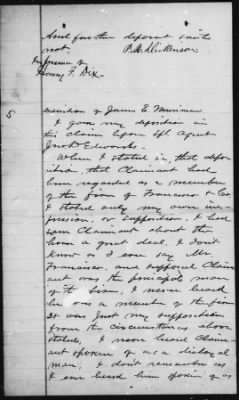 And further deponent saith
not. P. M. Dickenson
In presence of
Henry F. Dix
5
of James E. Merriman
I gave my deposition in
this claim before Spl. Agent
Jno. D. Edwards.
When I stated in that depo-
sition, that Claimant had
been regarded as a member
of the firm of Francisco & Co
I stated only my own im-
pression, or supposition, I had
seen Claimant about the
house a great deal, I don't
know as I ever say Mr.
Francisco, and supposed Claim-
ant was the principle man
of the firm, I never heard
he was a member of the firm
it was just my supposition
from the circumstances above
stated, I never heard Claim-
ant spoken of as a disloyal
man, I don't remember as
I ever heard him spoken of as